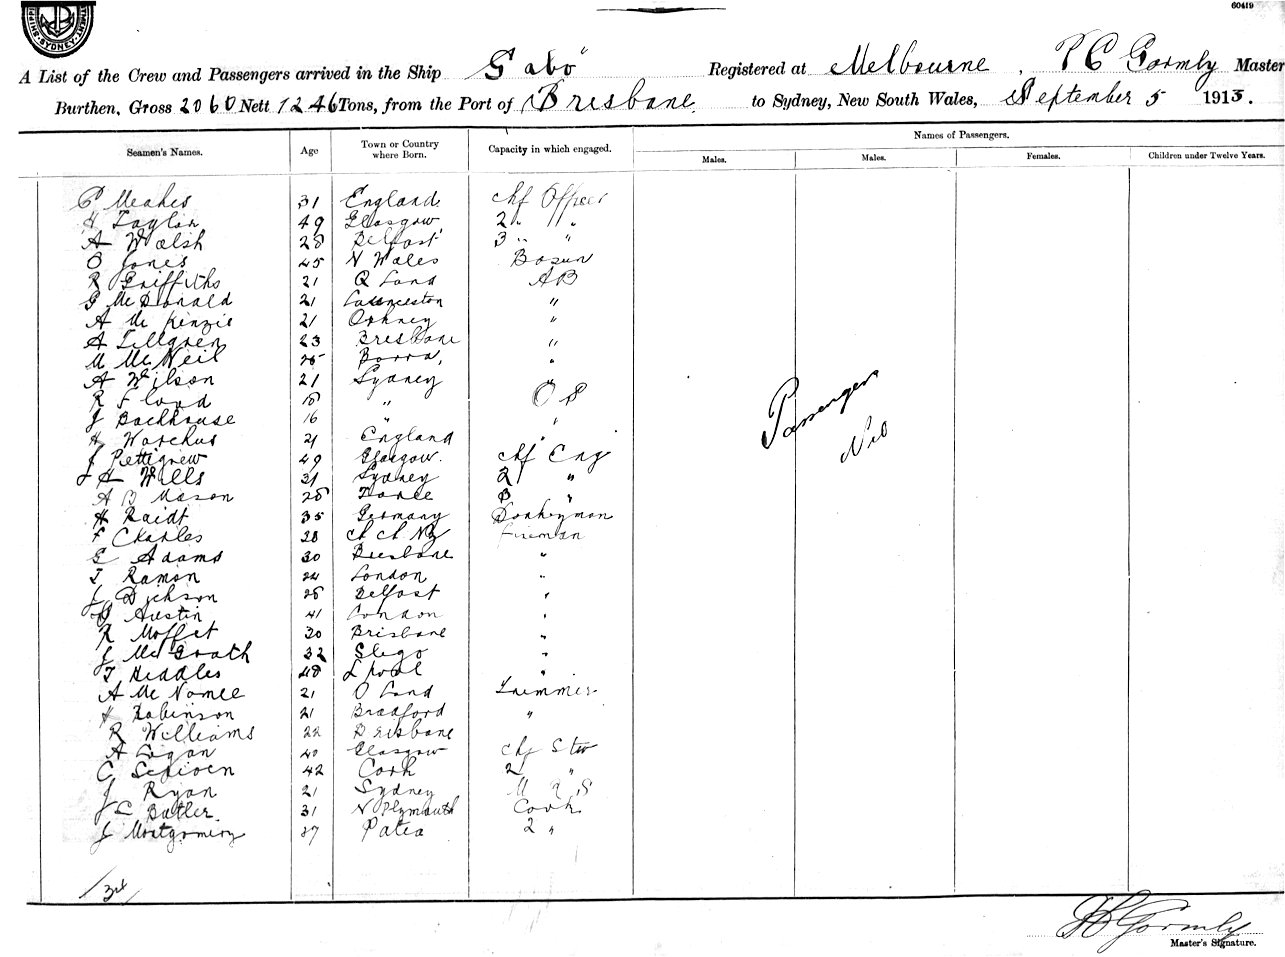 60419
SHIPPING SYDNEY
A List of the Crew and Passengers arrived in the Ship Gabo Registered at Melbourne, Gormly Master
Burthen, Gross 2060 Nett 1246 Tons, from the Port of Brisbane to Sydney, New South Wales, September 5 1913.
Seamen's Names. Age Town or Country where Born. Capacity in which engaged. Names of Passengers.
Males. Males. Females. Children under Twelve Years.
P Meakes 31 England Chf Officer
H Taylor 49 Glasgow 2 " "
A Walsh 28 Belfast 3 " "
O Jones 45 N Wales Bosun
R Griffiths 21 Q Land AB
G McDonald 21 Launceston "
A McKenzie 21 Orkney "
A Lillgren 23 Brisbane "
M McNeil 25 Barra, "
A Wilson 21 Sydney "
R Flood 18 " O S
J Backhouse 16 " "
H Warchus 21 England "
J Pettigrew 49 Glasgow. Chf Eng
J A Wills 31 Sydney 2 "
A B Mason 28 3 "
H Raidt 35 Germany Donkeyman
F Charles 28 Ch Ch NZ fireman
E Adams 30 Brisbane "
T Ramon 24 London "
J Dickson 28 Belfast "
Austin 41 London "
R Moffet 30 Brisbane "
J McGrath 32 Sligo "
T Hiddles 48 L pool "
A McNamee 21 Land Trimmer
H Robinson 21 Bradford "
R Williams 22 Brisbane
A Logan 40 Glasgow Chf Stw
C 42 Cork 2 "
J Ryan 21 Sydney
J C Butler. 31 N Plymouth Cook
J Montgomery 27 Patea 2 "
Passengers
Nil
Gormly
Master's Signature.